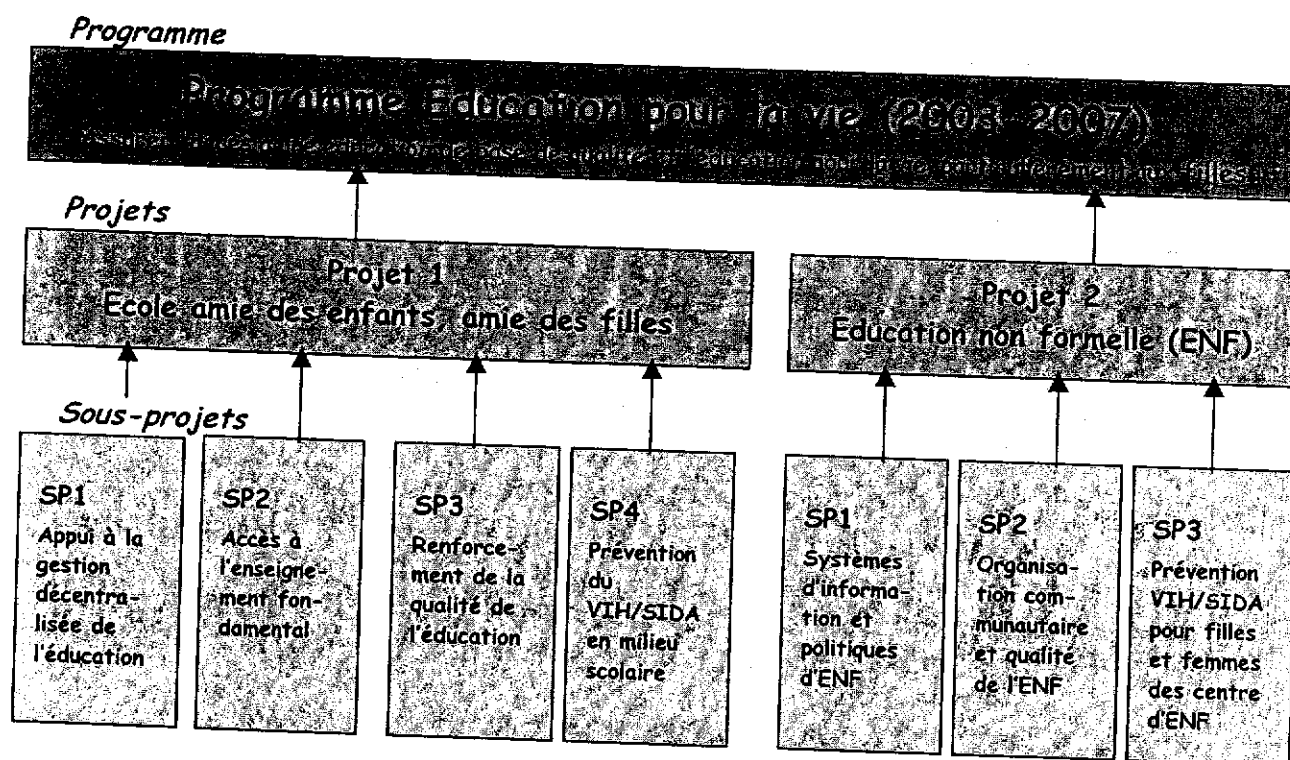 Programme
Programme Education pour la vie (2003-2007)
Projets
Projet 1
Ecole amie des enfants, amie des filles
Projet 2
Education non formelle (ENF)
Sous-projets
SP1
Appui à la
gestion
décentra-
lisée de
l'éducation
SP2
Accès à
l'enseigne-
ment fon-
damental
SP3
Renforce-
ment de la
qualité de
l'éducation
SP4
Prévention
du
VIH/SIDA
en milieu
scolaire
SP1
Systèmes
d'informa-
tion et
politiques
d'ENF
SP2
Organisa-
tion com-
munautaire
et qualité
de l'ENF
SP3
Prévention
VIH/SIDA
pour filles
et femmes
des centre
d'ENF